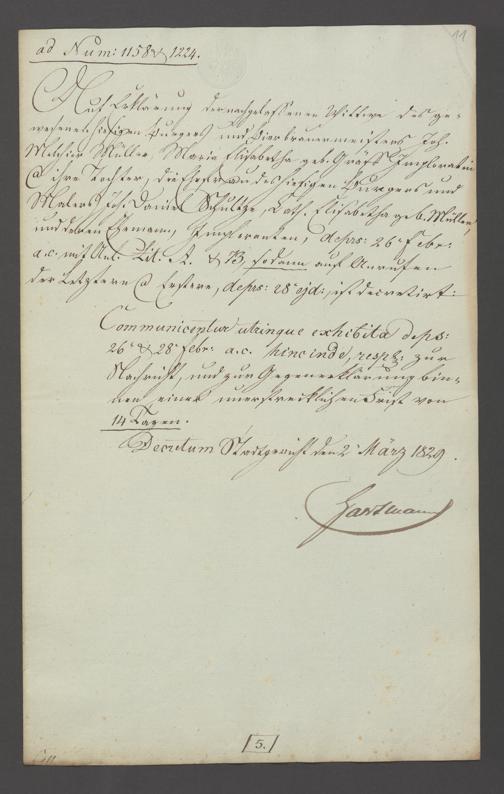 11
ad Num: 1158 & 1224.
Auf Erklärung der nachgelassenen Wittwe des ge-
wesenen hiesigen Burgers und Bierbrauermeisters Joh.
Melchior Müller, Maria Elisabetha geb. Gräff Implorantin
C ihre Tochter, die Ehefrau des hiesigen Burgers und
Malers Joh. Daniel Schultze, Cath. Elisabetha geb. Müller,
und deren Ehemann, Imploranten, de prs: 26 Febr:
a.c. mit Anl. Lit. A. & B, sodann auf Anrufen
der Letztern C Erstere, de prs: 28 ejd:, ist decretirt:
Communicentur utrinque exhibita de ps:
26 & 28 febr: a.c. hinc inde, resp: zur
Nachricht, und zur Gegenerklärung bin-
nen einer unerstrecklichen Frist von
14 Tagen.
Decretum Stadtgericht den 2 März 1829.
Hartmann
5.